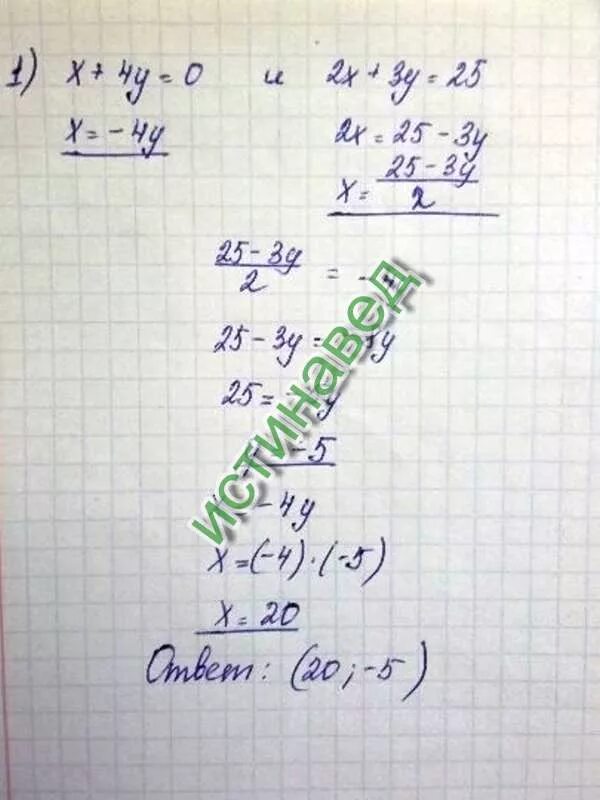 1) x + 4y = 0 и 2x + 3y = 25
x = -4y 2x = 25 - 3y
x = 25 - 3y / 2
25 - 3y / 2 = -4
25 - 3y = y
25 = y
-5
-4y
x = (-4) · (-5)
x = 20
Ответ: (20; -5)
истинавед